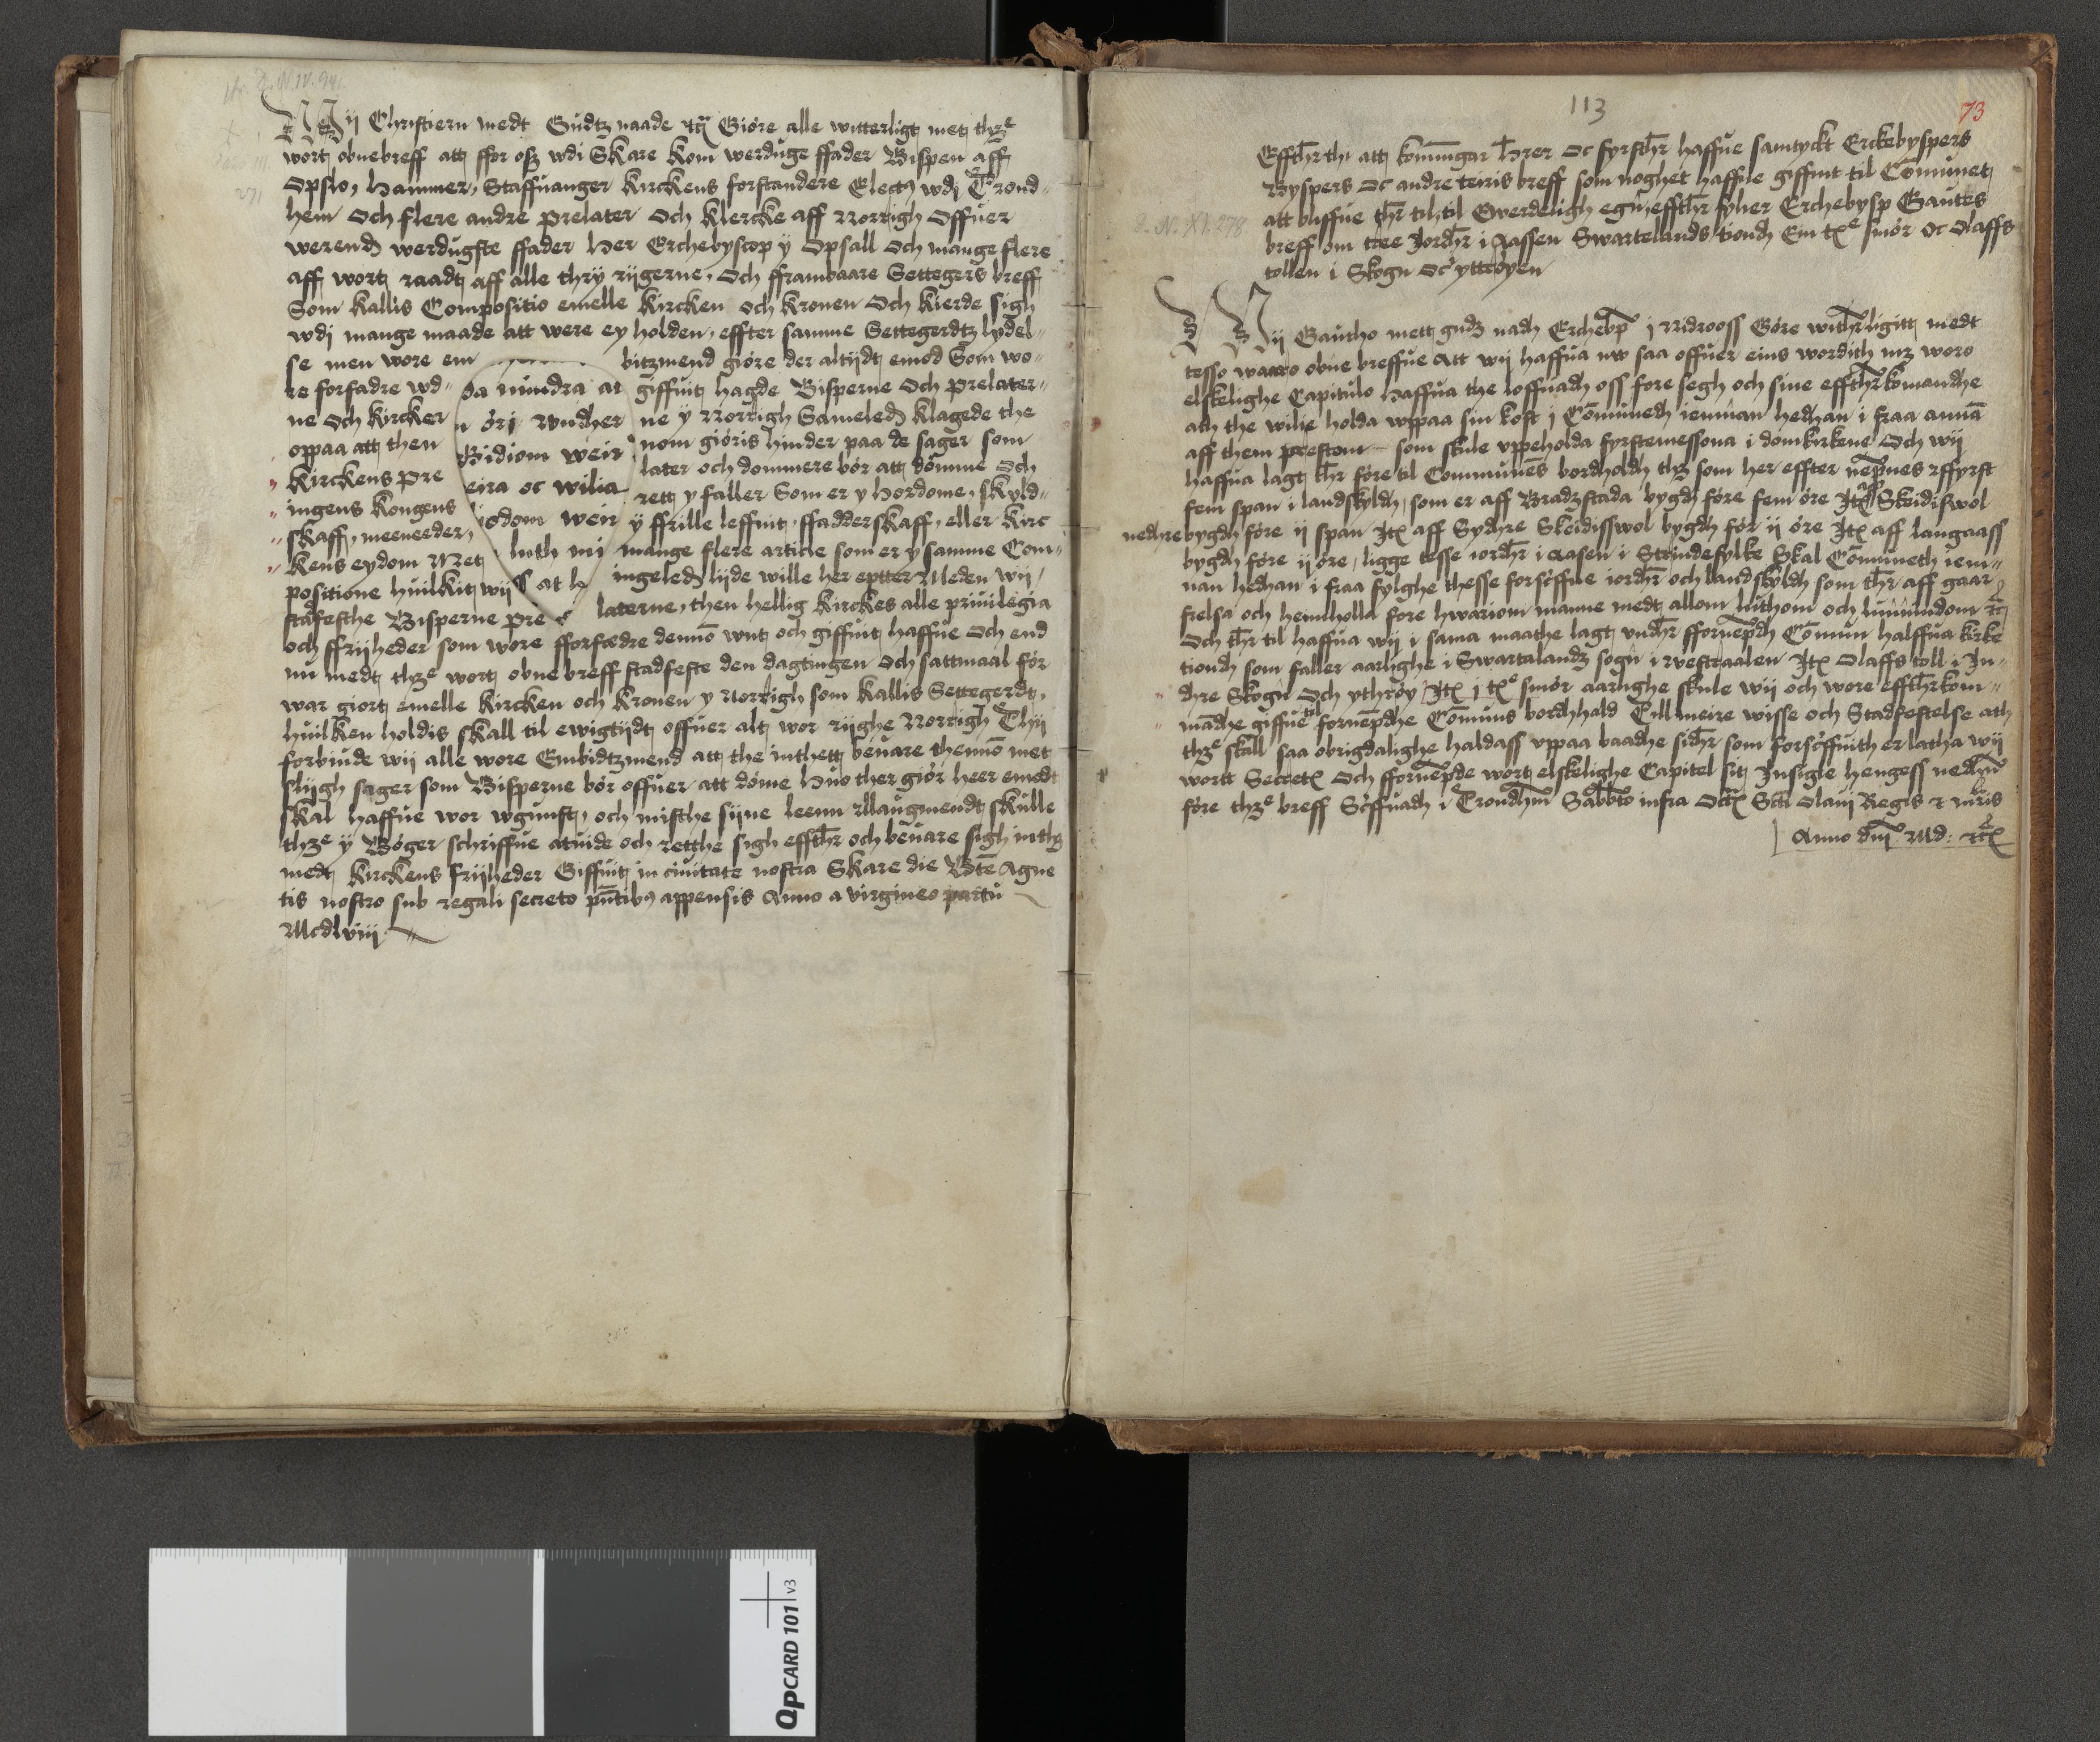 Wij Christiern medt Gudtz naade etc̃ Giöre alle witterligt met thzᵉ
wort obnebreff att ffor osz wdi Skare kom werduge ffader Bispen aff
Opslo, Hammer, Staffuanger kirckens forstandere Elect9 wdj Trond-
hem Och flere andre prelater Och klercke aff Norrigh Offuer
werend werdugste ffader Her Erchebyscop ÿ Opsall Och mange flere
aff wort raadt aff alle thrÿ rijgerne, Och fframbaare Settegers breff
Som kallis Compositio emelle kircken och kronen Och kierde sigh
wdj mange maade att were ey holden, effter samme Settegerdtz lydel-
se men wore em bitzmend giöre der altijdt emod Som wo-
re forfadre wd- giffuit hagde Bisperne Och prelater-
ne Och kircker ne ÿ Norrigh Sameled klagede the
oppaa att then nom giöris hinder paa de sager som
kirckens pre later och dommere bör att dömme Och
ingens kongens rett y faller Som er y Hordome, skyld-
skaff, meeneeder, ÿ ffrille leffnit, ffadderskaff, eller kirc
kens eydom Met mange flere article som er y samme Com-
positione huilkit wij ingeled lijde wille her eptter Meden wij
stadfesthe Bisperne pre laterne, then hellig kirckes alle priuilegia
da mindra at
n öri wndher
Bidiom weir
eira oc wilia
iodom weir
luth mi
ſ at h
och ffrijheder som wore fforfædre dennō wnt och giffuit haffue Och end
nu medt thzᵉ wort obne breff stadfeste den dagtingen Och sattmaal för
war giort emelle kircken och kronen y Norrigh som kallis Settegerdt,
huilken holdis skall til ewigtijdt offuer alt wor rijghe Norrigh Thij
forbiude wij alle wore Embidtzmend att the inthett beuare thennō met
slijgh sager som Bisperne bör offuer att döme Huo ther giör heer emodt
skal haffue wor wgunst, och misthe sijne leenn Mlaugmendt skulle
thzᵉ ÿ Böger schriffue atuide och retthe sigh effthr̄ och beuare sigh inthz
medt kirckens frijheder Giffuit in ciuitate nostra Skare die Btē Agne
tis nostro sub regali secreto pn̄tib9 appensis Anno a virgineo partu
Mcdlviij
113
73
Effthr̄ th att komīngar Hrer Oc fyrsthr̄ haffue samtyckt Erckebyspers
Byspers Oc andre teiris breff som noghet haffue giffuit til Comunet
att bliffue thr̄ til, til Ewerdeligh egn, effthr̄ fylier Erchebysp Gautes
breff om tree Jordhr̄ i Aasen Swartelands tiond Em tꝝᵉ smör Oc Olaffs
tollen i Skogn Oc ytteröyen
D. N. XI. 278
Wij Gautho mett gudz nadh Erchebp̄ j Nidrooss Göre withr̄ligitt medt
tesso waaro obne breffue Att wij haffua nw saa offuer eins wordith mz woro
elskelighe Capitulo Haffua the loffuadh oss fore segh och sine effthr̄komandhe
ath the wilie holda wppaa sin kost j Cōmunedh iemnan hedhan i fraa annā
aff them prestom som skule vppeholda fyrstemessona i domkirkene Och wij
haffua lagt thr̄ före til Communēs bordhaldh thz som her effter nēpnes Ffyrst
fem span i landskyldh, som er aff Bradzstada bygdh före fem öre Jtꝝ aff Skeidiswol
nedhre bygdh före ij span Jtꝝ aff Sydhre Skeidisswol bygdh för ij öre Jtꝝ aff langaass
bygdh före ij öre, ligge tesse iordhr̄ i Aasen i Strindefylke Skal Cōmuneth iem-
nan hedhan i fraa fylghe thesse forsc̄ffne iordhr̄ och landskyldh som thr̄ aff gaar
frelsa och heimholla fore hwariom manne medt allom luthom och lunnindom etc̄
Och thr̄ til haffua wij i sama maathe lagt vndhr̄ ffornēpdh Cōmun halffua kirke
tiondh som faller aarlighe i Swartalandz sogn i Wesfraalen Jtꝝ Olaffs toll i In-
dhre Skogn Och ythröy Jtꝝ j tꝝᵉ smör aarlighe skule wij och wore effthr̄kom-
mādhe giffue til fornēpdhe Cōmuns bordhhald Till meire wisse och Stadfestelse ath
thzᵉ skall saa obrigdalighe haldass vppaa baadhe sidhr̄ som forsc̄ffuith er latha wij
wortt Secretꝝ Och ffornēpde wort elskelighe Capitel sit Insigle hengess nedhn̄
före thzᵉ breff Sc̄ffuadh i Trondhm̄ Sabbto infra Octꝝ Sc̄ti Olaui Regis & mr̄is
Anno dn̄i Md: etꝝ
QpCARD 101 v3